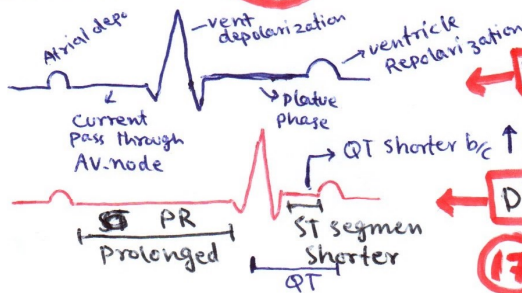 Atrial depo
vent
depolarization
ventricle
Repolarization
current
pass through
AV.node
platue
phase
QT shorter b/c ↑
D
PR
prolonged
ST segmen
shorter
QT
17